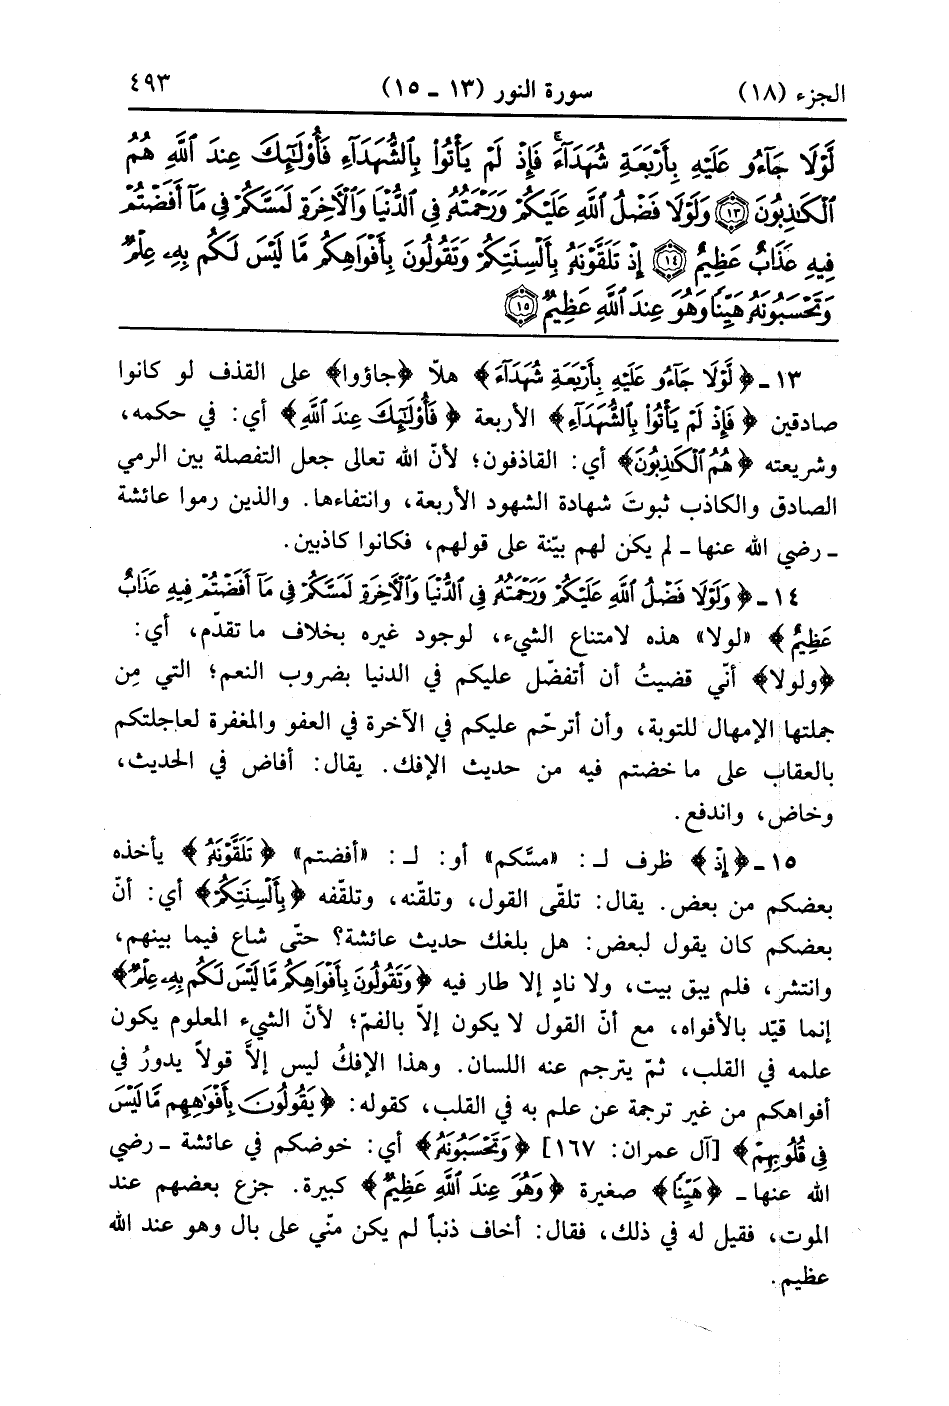 الجزء (١٨)
سورة النور (١٣ ـ ١٥)
٤٩٣
لَّوْلَا جَآءُو عَلَيْهِ بِأَرْبَعَةِ شُهَدَآءَ ۚ فَإِذْ لَمْ يَأْتُوا۟ بِٱلشُّهَدَآءِ فَأُو۟لَٰٓئِكَ عِندَ ٱللَّهِ هُمُ
ٱلْكَٰذِبُونَ ﴿١٣﴾ وَلَوْلَا فَضْلُ ٱللَّهِ عَلَيْكُمْ وَرَحْمَتُهُۥ فِى ٱلدُّنْيَا وَٱلْءَاخِرَةِ لَمَسَّكُمْ فِى مَآ أَفَضْتُمْ
فِيهِ عَذَابٌ عَظِيمٌ ﴿١٤﴾ إِذْ تَلَقَّوْنَهُۥ بِأَلْسِنَتِكُمْ وَتَقُولُونَ بِأَفْوَاهِكُم مَّا لَيْسَ لَكُم بِهِۦ عِلْمٌ
وَتَحْسَبُونَهُۥ هَيِّنًا وَهُوَ عِندَ ٱللَّهِ عَظِيمٌ ﴿١٥﴾
١٣ ـ ﴿لَّوْلَا جَآءُو عَلَيْهِ بِأَرْبَعَةِ شُهَدَآءَ﴾ هلاّ ﴿جاؤوا﴾ على القذف لو كانوا
صادقين ﴿فَإِذْ لَمْ يَأْتُوا۟ بِٱلشُّهَدَآءِ﴾ الأربعة ﴿فَأُو۟لَٰٓئِكَ عِندَ ٱللَّهِ﴾ أي: في حكمه،
وشريعته ﴿هُمُ ٱلْكَٰذِبُونَ﴾ أي: القاذفون؛ لأنّ الله تعالى جعل التفصلة بين الرمي
الصادق والكاذب ثبوتَ شهادة الشهود الأربعة، وانتفاءها. والذين رموا عائشة
ـ رضي الله عنها ـ لم يكن لهم بيّنة على قولهم، فكانوا كاذبين.
١٤ ـ ﴿وَلَوْلَا فَضْلُ ٱللَّهِ عَلَيْكُمْ وَرَحْمَتُهُۥ فِى ٱلدُّنْيَا وَٱلْءَاخِرَةِ لَمَسَّكُمْ فِى مَآ أَفَضْتُمْ فِيهِ عَذَابٌ
عَظِيمٌ﴾ «لولا» هذه لامتناع الشيء، لوجود غيره بخلاف ما تقدّم، أي:
﴿ولولا﴾ أنّي قضيتُ أن أتفضّل عليكم في الدنيا بضروب النعم؛ التي مِن
جملتها الإمهال للتوبة، وأن أترحّم عليكم في الآخرة في العفو والمغفرة لعاجلتكم
بالعقاب على ما خضتم فيه من حديث الإفك. يقال: أفاض في الحديث،
وخاض، واندفع.
١٥ ـ ﴿إِذْ﴾ ظرف لـ: «مسَّكم» أو: لـ: «أفضتم» ﴿تَلَقَّوْنَهُۥ﴾ يأخذه
بعضكم من بعض. يقال: تلقّى القول، وتلقّنه، وتلقّفه ﴿بِأَلْسِنَتِكُمْ﴾ أي: أنّ
بعضكم كان يقول لبعض: هل بلغك حديث عائشة؟ حتّى شاع فيما بينهم،
وانتشر، فلم يبق بيت، ولا نادٍ إلا طار فيه ﴿وَتَقُولُونَ بِأَفْوَاهِكُم مَّا لَيْسَ لَكُم بِهِۦ عِلْمٌ﴾
إنما قيّد بالأفواه، مع أنّ القول لا يكون إلاّ بالفمّ؛ لأنّ الشيء المعلوم يكون
علمه في القلب، ثمّ يترجم عنه اللسان. وهذا الإفكُ ليس إلاَّ قولاً يدورُ في
أفواهكم من غير ترجمة عن علم به في القلب، كقوله: ﴿يَقُولُونَ بِأَفْوَٰهِهِم مَّا لَيْسَ
فِى قُلُوبِهِمْ﴾ [آل عمران: ١٦٧] ﴿وَتَحْسَبُونَهُۥ﴾ أي: خوضكم في عائشة ـ رضي
الله عنها ـ ﴿هَيِّنًا﴾ صغيرة ﴿وَهُوَ عِندَ ٱللَّهِ عَظِيمٌ﴾ كبيرة. جزع بعضهم عند
الموت، فقيل له في ذلك، فقال: أخاف ذنباً لم يكن منّي على بال وهو عند الله
عظيم.